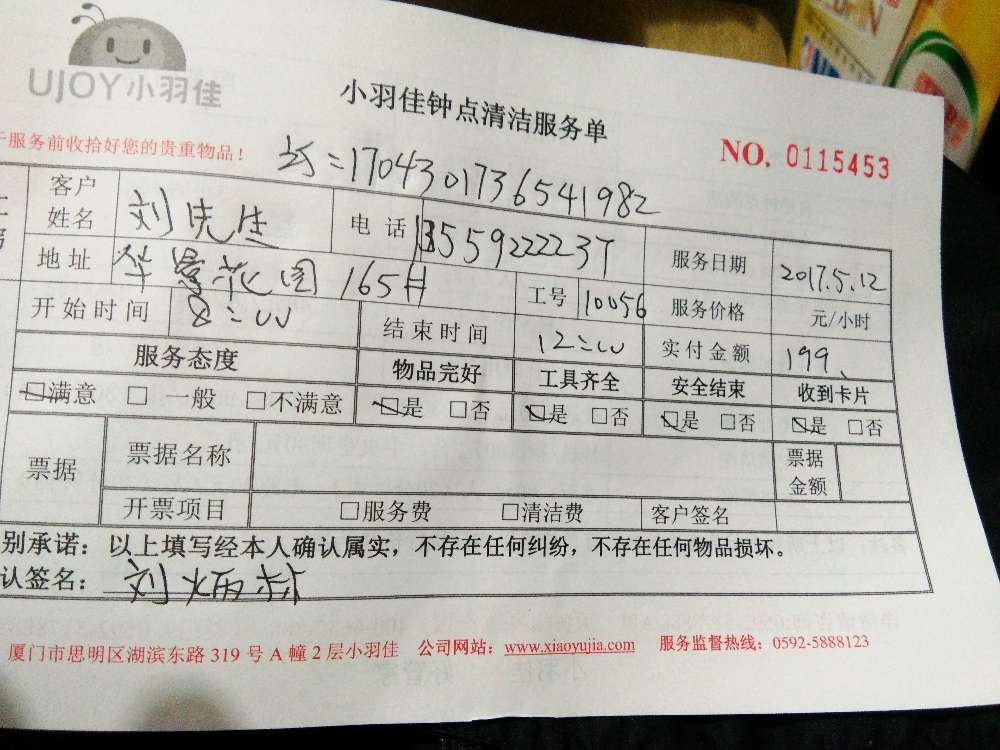 UJOY小羽佳
小羽佳钟点清洁服务单
服务前收拾好您的贵重物品！
NO. 0115453
=1704301736541982
客户姓名 刘先生 电话 13559222237 服务日期 2017.5.12
地址 华景花园 165H 工号 10056 服务价格 元/小时
开始时间 8:00 结束时间 12:00 实付金额 199、
服务态度 物品完好 工具齐全 安全结束 收到卡片
☑满意 □ 一般 □不满意 ☑是 □否 ☑是 □否 ☑是 □否 ☑是 □否
票据 票据名称 票据金额
开票项目 □服务费 □清洁费 客户签名
别承诺：以上填写经本人确认属实，不存在任何纠纷，不存在任何物品损坏。
认签名：刘炳
厦门市思明区湖滨东路 319 号 A 幢 2 层小羽佳 公司网站：www.xiaoyujia.com 服务监督热线：0592-5888123